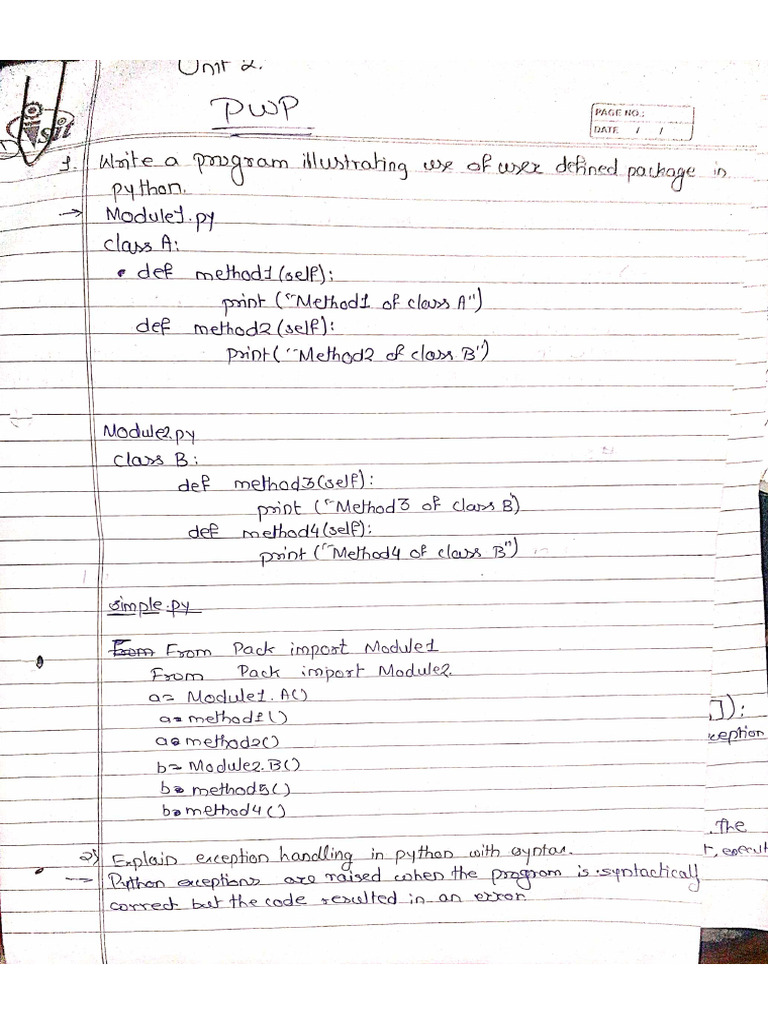 Unit 2.
PWP
PAGE NO.:
DATE / /
1. Write a program illustrating use of user defined package in
python.
→ Module1.py
class A:
def method1(self):
print ("Method1 of class A")
def method2(self):
print("Method2 of class B")
Module2.py
class B:
def method3(self):
print ("Method3 of class B)
def method4(self):
print ("Method4 of class B")
simple.py
From From Pack import Module1
From Pack import Module2.
a= Module1.A()
a=method1()
a.method2()
b= Module2.B()
b.method5()
b.method4()
]):
xception
.The
r, execut
2) Explain exception handling in python with syntax.
Python exceptions are raised when the program is syntactically
correct but the code resulted in an error